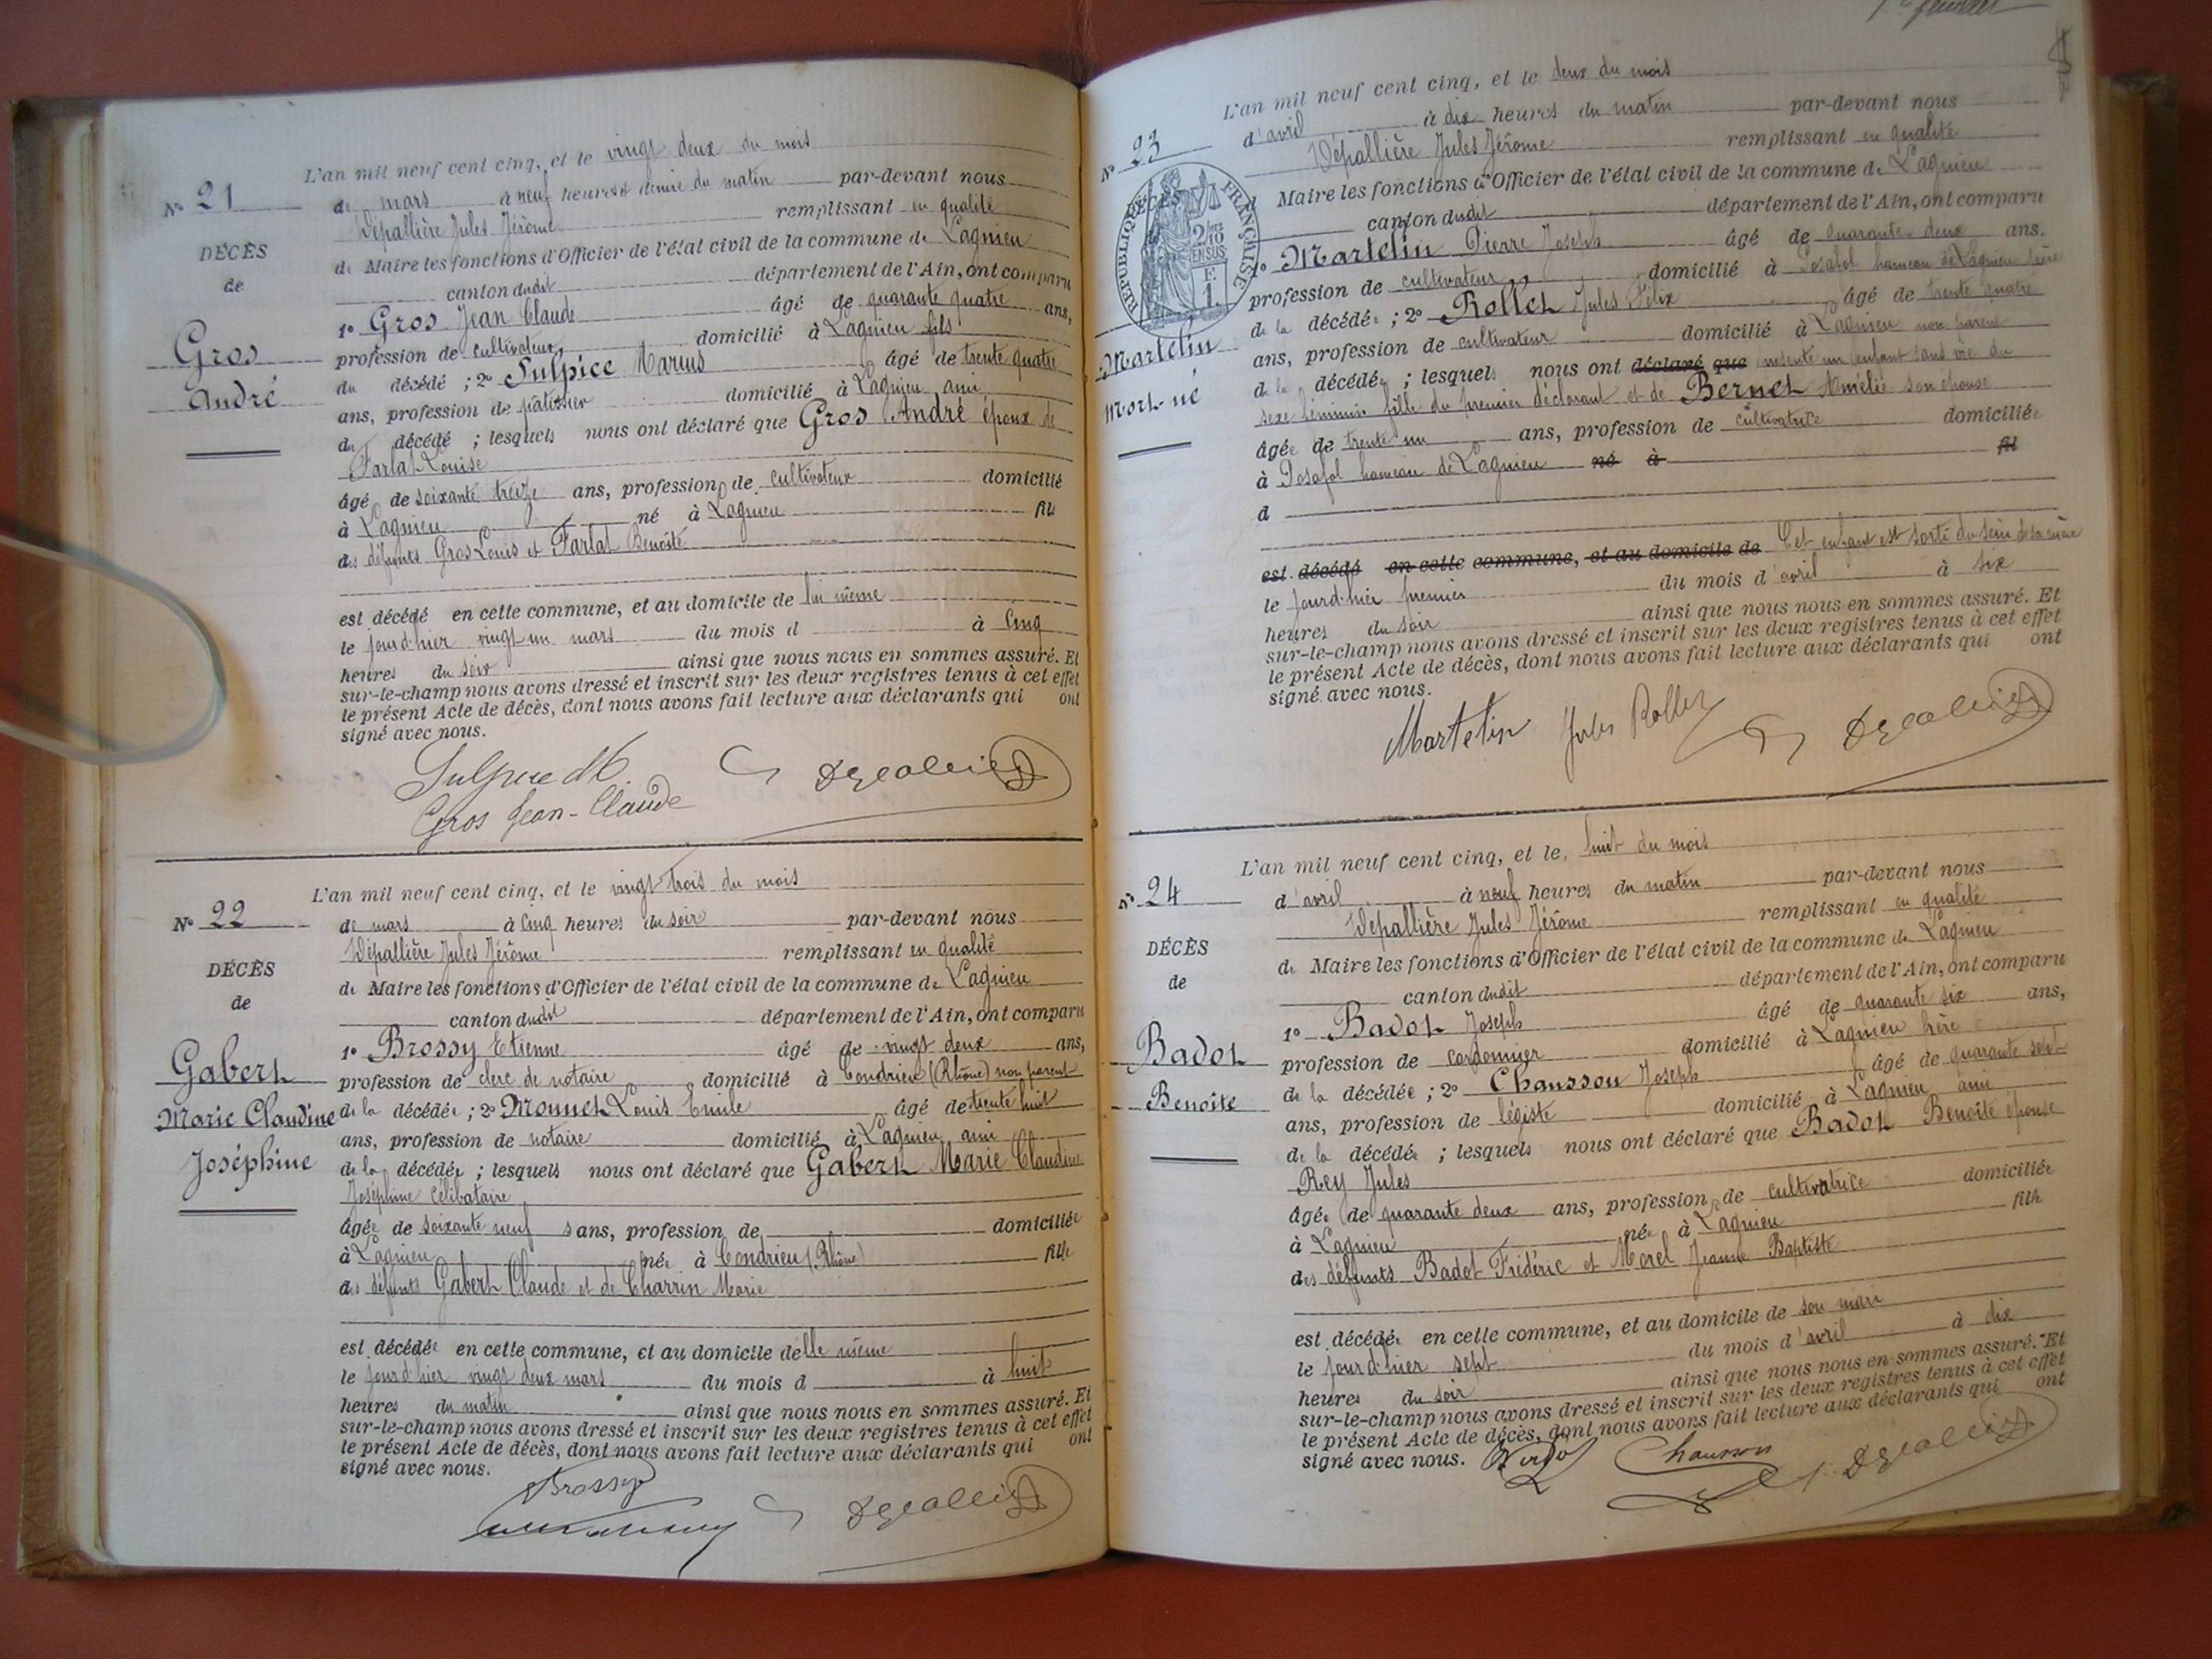 L'an mil neuf cent cinq, et le vingt deux du mois
N° 21
de mars à neuf heures et demie du matin par-devant nous
Dépallière Jules Jérôme remplissant en qualité
DÉCÈS
de Maire les fonctions d'Officier de l'état civil de la commune de Lagnieu
de
canton dudit département de l'Ain, ont comparu
1° Gros Jean Claude âgé de quarante quatre ans,
Gros
profession de cultivateur domicilié à Lagnieu fils
du décédé ; 2° Sulpice Marius âgé de trente quatre
André
ans, profession de patissier domicilié à Lagnieu ami
du décédé ; lesquels nous ont déclaré que Gros André époux de
Farlat Louise
âgé de soixante treize ans, profession de cultivateur domicilié
à Lagnieu né à Lagnieu fils
des défunts Gros Louis et Farlat Benoîte
est décédé en cette commune, et au domicile de lui même
le jourd'hier vingt un mars du mois d à cinq
heures du soir ainsi que nous nous en sommes assuré. Et
sur-le-champ nous avons dressé et inscrit sur les deux registres tenus à cet effet
le présent Acte de décès, dont nous avons fait lecture aux déclarants qui ont
signé avec nous.
Sulpice M.
Gros Jean-Claude
L'an mil neuf cent cinq, et le vingt trois du mois
N° 22
de mars à cinq heures du soir par-devant nous
Dépallière Jules Jérôme remplissant en qualité
DÉCÈS
de Maire les fonctions d'Officier de l'état civil de la commune de Lagnieu
de
canton dudit département de l'Ain, ont comparu
1° Brossy Etienne âgé de vingt deux ans,
Gabert
profession de clerc de notaire domicilié à Condrieu (Rhône) non parent
Marie Claudine
de la décédée ; 2° Monnet Louis Emile âgé de trente huit
ans, profession de notaire domicilié à Lagnieu ami
Joséphine
de la décédée ; lesquels nous ont déclaré que Gabert Marie Claudine
Joséphine célibataire
âgée de soixante neuf ans, profession de domiciliée
à Lagnieu née à Condrieu (Rhône) fille
des défunts Gabert Claude et de Charrin Marie
est décédée en cette commune, et au domicile delle même
le jourd'hier vingt deux mars du mois d à huit
heures du matin ainsi que nous nous en sommes assuré. Et
sur-le-champ nous avons dressé et inscrit sur les deux registres tenus à cet effet
le présent Acte de décès, dont nous avons fait lecture aux déclarants qui ont
signé avec nous.
Brossy
feuillet
L'an mil neuf cent cinq, et le deux du mois
N° 23
d'avril à dix heures du matin par-devant nous
Dépallière Jules Jérôme remplissant en qualité
RÉPUBLIQUE FRANÇAISE
DÉCÈS
2/10 EN SUS
1 F.
d Maire les fonctions d'Officier de l'état civil de la commune de Lagnieu
canton dudit département de l'Ain, ont comparu
1° Martelin Pierre Joseph âgé de quarante deux ans.
profession de cultivateur domicilié à Posafol hameau de Lagnieu père
de la décédée ; 2° Rollet Jules Félix âgé de trente quatre
Martelin
ans, profession de cultivateur domicilié à Lagnieu non parent
Mort-né
de la décédée ; lesquels nous ont déclaré que présenté un enfant sans vie du
sexe féminin fille du premier déclarant et de Bernet Amélie son épouse
âgée de trente un ans, profession de cultivatrice domiciliée
à Posafol hameau de Lagnieu né à fil
d
est décédé en cette commune, et au domicile de Cet enfant est sorti du sein de sa mère
le jourd'hier premier du mois d'avril à six
heures du soir ainsi que nous nous en sommes assuré. Et
sur-le-champ nous avons dressé et inscrit sur les deux registres tenus à cet effet
le présent Acte de décès, dont nous avons fait lecture aux déclarants qui ont
signé avec nous.
Martelin Jules Rollet
L'an mil neuf cent cinq, et le, huit du mois
N° 24
d'avril à neuf heures du matin par-devant nous
Dépallière Jules Jérôme remplissant en qualité
DÉCÈS
de Maire les fonctions d'Officier de l'état civil de la commune de Lagnieu
de
canton dudit département de l'Ain, ont comparu
1° Badot Joseph âgé de quarante six ans,
Badot
profession de cordonnier domicilié à Lagnieu frère
de la décédée ; 2° Chausson Joseph âgé de quarante sept
Benoîte
ans, profession de légiste domicilié à Lagnieu ami
de la décédée ; lesquels nous ont déclaré que Badot Benoîte épouse
Rey Jules
âgée de quarante deux ans, profession de cultivatrice domiciliée
à Lagnieu née à Lagnieu fille
des défunts Badot Frédéric et Morel Jeanne Baptiste
est décédée en cette commune, et au domicile de son mari
le jourd'hier sept du mois d'avril à dix
heures du soir ainsi que nous nous en sommes assuré. Et
sur-le-champ nous avons dressé et inscrit sur les deux registres tenus à cet effet
le présent Acte de décès, dont nous avons fait lecture aux déclarants qui ont
signé avec nous. Chausson